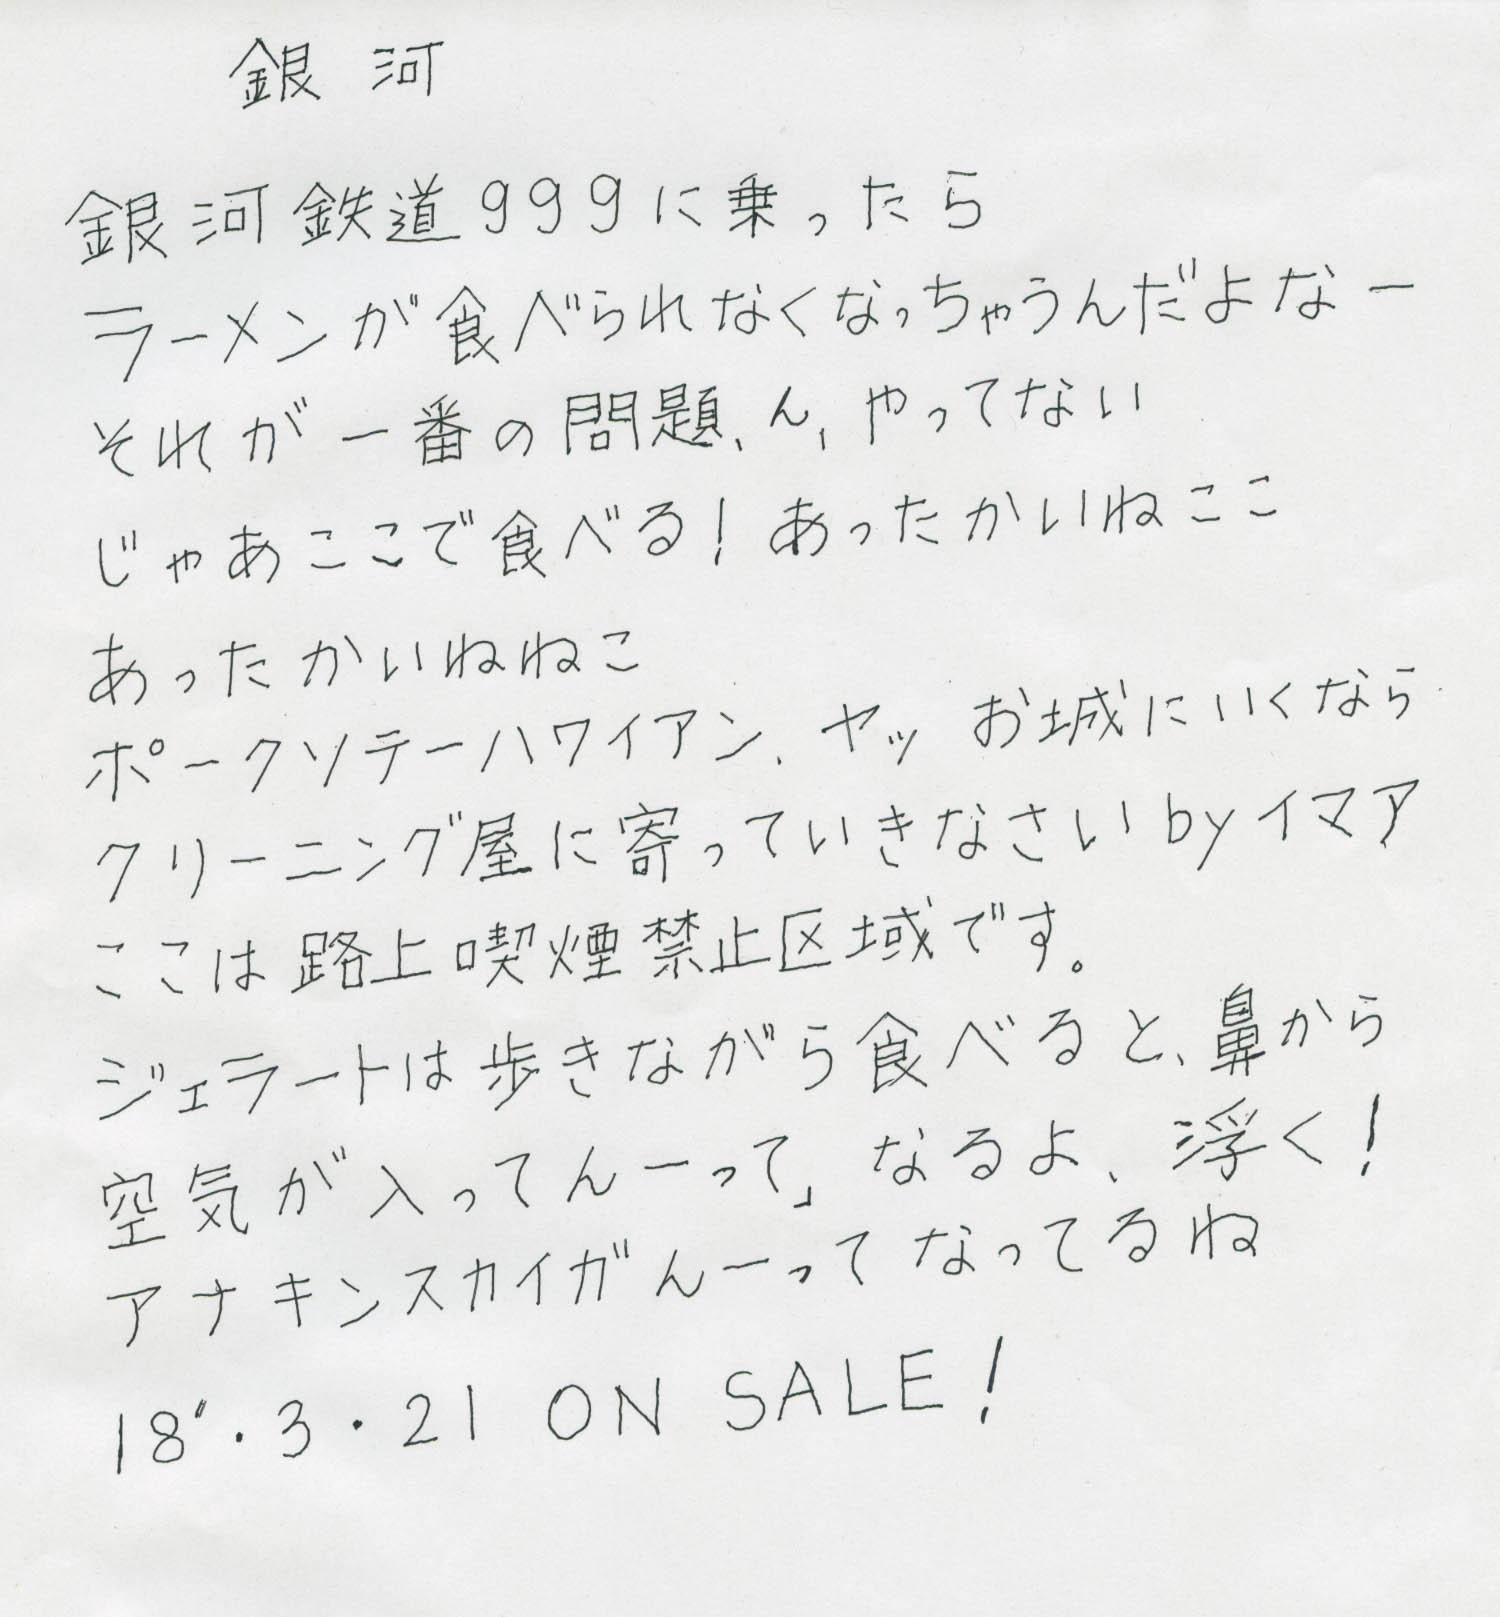 銀河
銀河鉄道999に乗ったら
ラーメンが食べられなくなっちゃうんだよなー
それが一番の問題、ん、やってない
じゃあここで食べる！あったかいねここ
あったかいねねこ
ポークソテーハワイアン、ヤッ お城にいくなら
クリーニング屋に寄っていきなさいbyイマア
ここは路上喫煙禁止区域です。
ジェラートは歩きながら食べると、鼻から
空気が入ってんーって」なるよ、浮く！
アナキンスカイがんーってなってるね
18"・3・21 ON SALE!